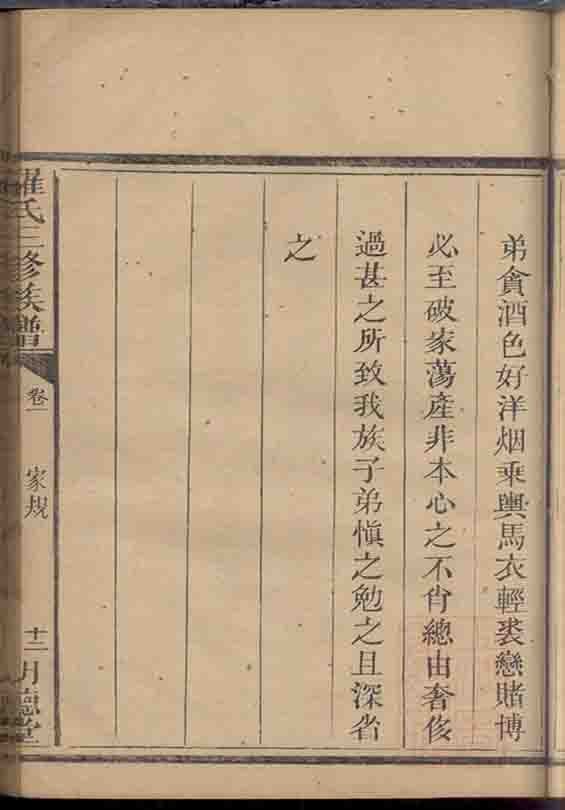 弟貪酒色好洋烟乘輿馬衣輕裘戀賭博
必至破家蕩產非本心之不肖總由奢侈
過甚之所致我族子弟慎之勉之且深省
之
羅氏三修族譜
卷一
家規
十二
明德堂